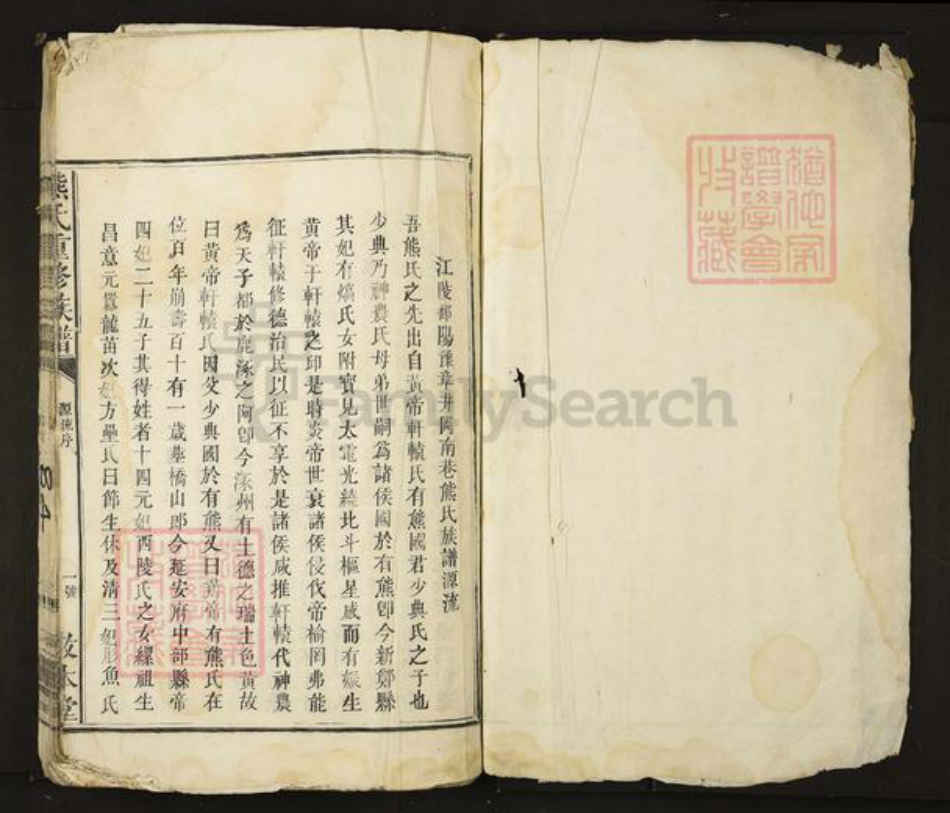 猶他家
譜學會
收藏
FamilySearch
江陵鄱陽豫章井岡南巷熊氏族譜源流
吾熊氏之先出自黃帝軒轅氏有熊國君少典氏之子也
少典乃神農氏母弟世嗣為諸侯國於有熊卽今新鄭縣
其妃有嬌氏女附寶見大電光繞北斗樞星感而有娠生
黃帝于軒轅之邱是時炎帝世衰諸侯侵伐帝榆罔弗能
征軒轅修德治民以征不享於是諸侯咸推軒轅代神農
為天子都於鹿涿之阿卽今涿州有土德之瑞土色黃故
曰黃帝軒轅氏因父少典國於有熊又曰黃帝有熊氏在
位百年崩壽百十有一歲塟橋山即今延安府中部縣帝
四妃二十五子其得姓者十四元妃西陵氏之女嫘祖生
昌意元囂龍苗次妃方壘氏曰節生休及清三妃彤魚氏
熊氏重修族譜
源流序
一號
敦本堂